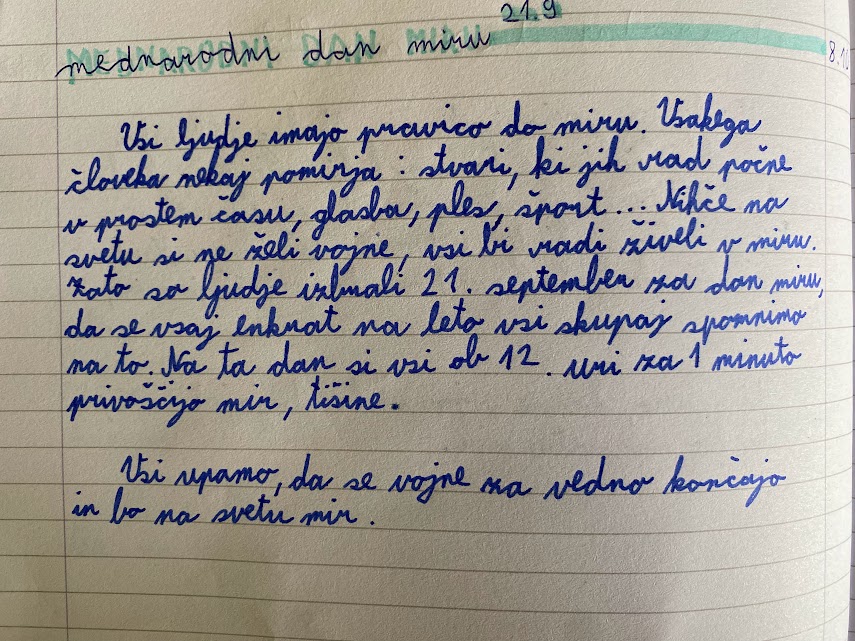 21.9
mednarodni dan miru
Vsi ljudje imajo pravico do miru. Vsakega
človeka nekaj pomirja : stvari, ki jih rad počne
v prostem času, glasba, ples, šport... Nihče na
svetu si ne želi vojne, vsi bi radi živeli v miru.
Zato so ljudje izbrali 21. september za dan miru,
da se vsaj enkrat na leto vsi skupaj spomnimo
na to. Na ta dan si vsi ob 12. uri za 1 minuto
privoščijo mir, tišine.
Vsi upamo, da se vojne za vedno končajo
in bo na svetu mir.